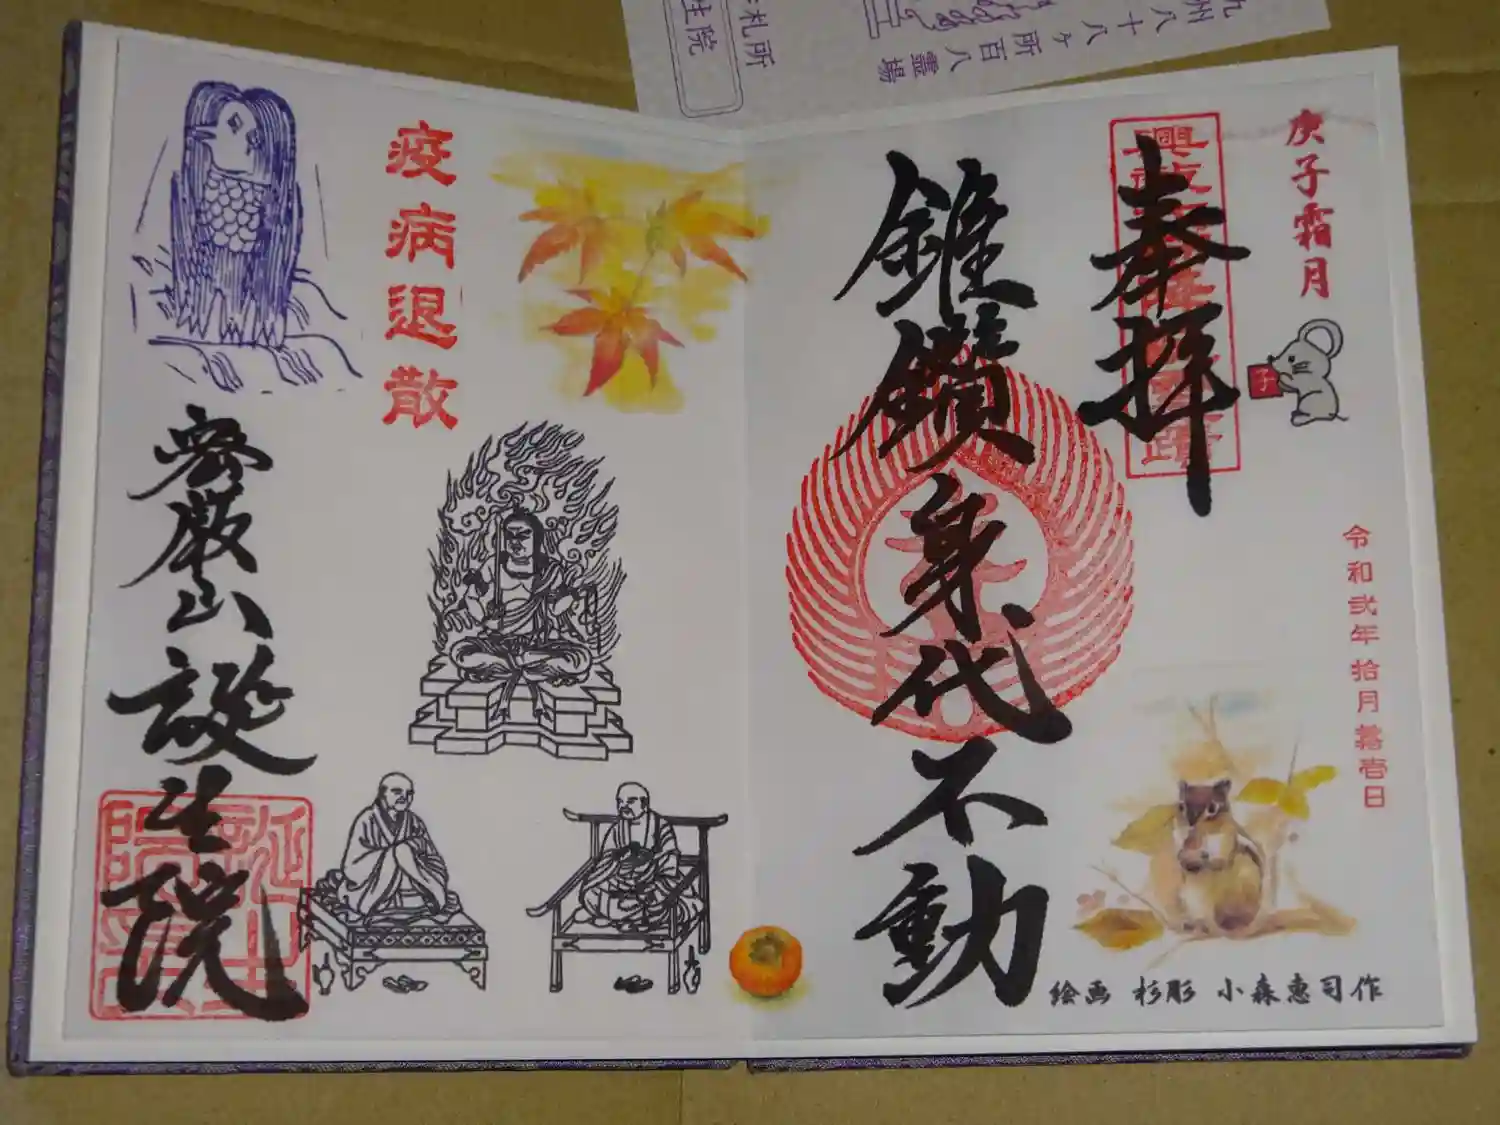 九州八十八ヶ所百八霊場
札所
生院
庚子霜月
子
奉拝
令和弐年拾月
壱日
錐鑽身代不動
絵画 杉彫 小森恵司作
疫病退散
密厳山誕生院